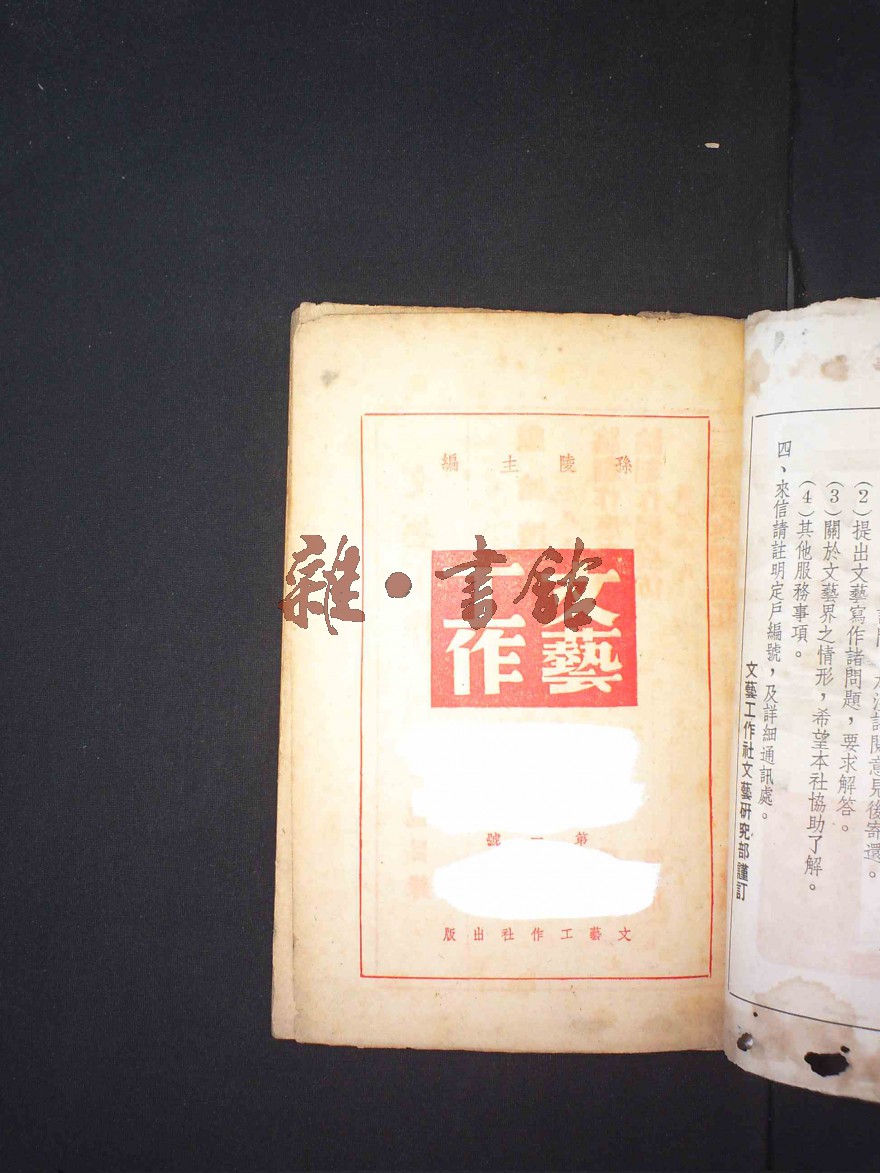 孫陵主編
文藝
工作
第一號
文藝工作社出版
雜·書館
意見後寄還。
(2)提出文藝寫作諸問題，要求解答。
(3)關於文藝界之情形，希望本社協助了解。
(4)其他服務事項。
四、來信請註明定户編號，及詳細通訊處。
文藝工作社文藝研究部謹訂